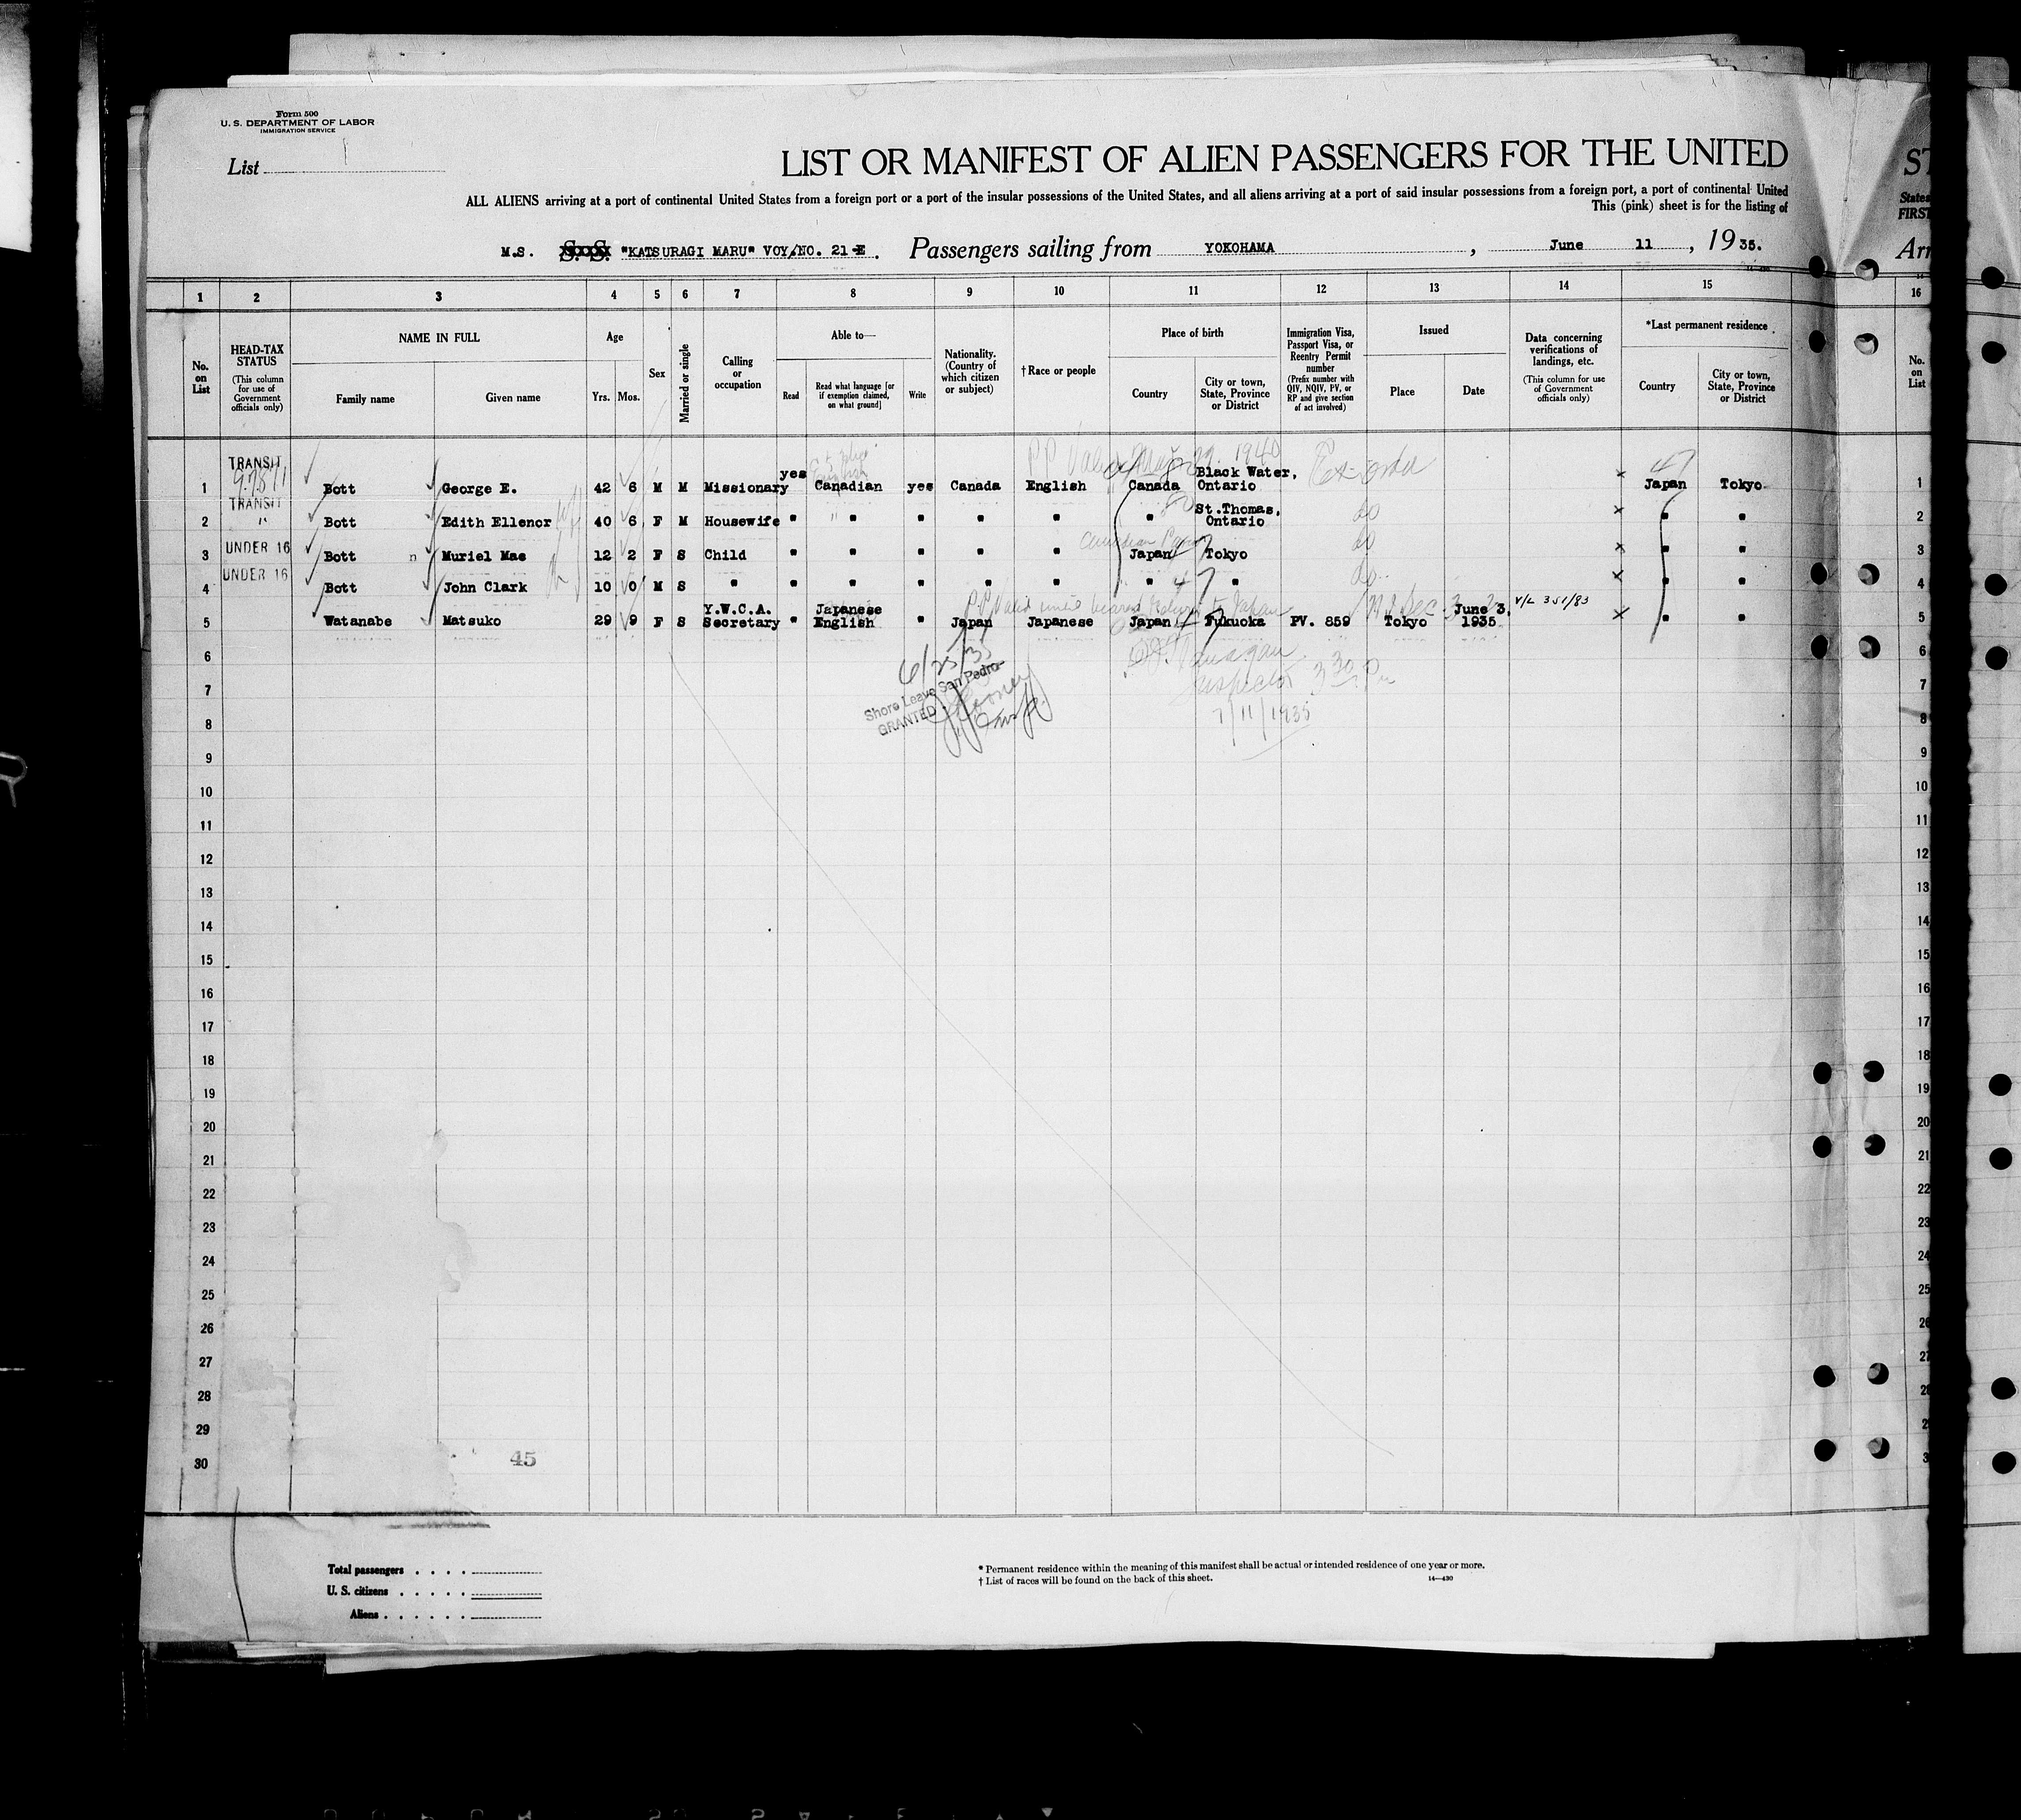 Form 500
U. S. DEPARTMENT OF LABOR
IMMIGRATION SERVICE
List
LIST OR MANIFEST OF ALIEN PASSENGERS FOR THE UNITED
ST
ALL ALIENS arriving at a port of continental United States from a foreign port or a port of the insular possessions of the United States, and all aliens arriving at a port of said insular possessions from a foreign port, a port of continental United
States
This (pink) sheet is for the listing of
FIRST
M.S. S. S. "KATSURAGI MARU" VOY.NO. 21-E. Passengers sailing from YOKOHAMA, June 11, 1935.
Arri
1 2 3 4 5 6 7 8 9 10 11 12 13 14 15 16
No. on List
HEAD-TAX STATUS
(This column for use of Government officials only)
NAME IN FULL
Family name
Given name
Age
Yrs. Mos.
Sex
Married or single
Calling or occupation
Able to—
Read
Read what language [or if exemption claimed, on what ground]
Write
Nationality. (Country of which citizen or subject)
†Race or people
Place of birth
Country
City or town, State, Province or District
Immigration Visa, Passport Visa, or Reentry Permit number
(Prefix number with QIV, NQIV, PV, or RP and give section of act involved)
Issued
Place
Date
Data concerning verifications of landings, etc.
(This column for use of Government officials only)
*Last permanent residence
Country
City or town, State, Province or District
No. on List
PP Valid 1940
TRANSIT
1 Bott George E. 42 6 M M Missionary yes Canadian yes Canada English Canada Black Water, Ontario x Japan Tokyo 1
TRANSIT
2 " Bott Edith Ellenor 40 6 F M Housewife " " " " " " St.Thomas, Ontario do x " " 2
UNDER 16
Canadian
3 Bott Muriel Mae 12 2 F S Child " " " " " Japan Tokyo do x " " 3
UNDER 16
4 Bott John Clark 10 0 M S " " " " " " " " do x " " 4
PP Valid until bearer's return to Japan
5 Watanabe Matsuko 29 9 F S Y.W.C.A. Secretary " Japanese English " Japan Japanese Japan Fukuoka PV. 859 Tokyo June 3, 1935 V/L 351/83 x " " 5
6 6
7 7
8 8
9 9
10 10
11 11
12 12
13 13
14 14
15 15
16 16
17 17
18 18
19 19
20 20
21 21
22 22
23 23
24 24
25 25
26 26
27 27
28
29
30
6/25/35
Shore Leave San Pedro
GRANTED
Inspector 3 30 Pm
7/11/1935
45
Total passengers
U. S. citizens
Aliens
* Permanent residence within the meaning of this manifest shall be actual or intended residence of one year or more.
† List of races will be found on the back of this sheet.
14—430